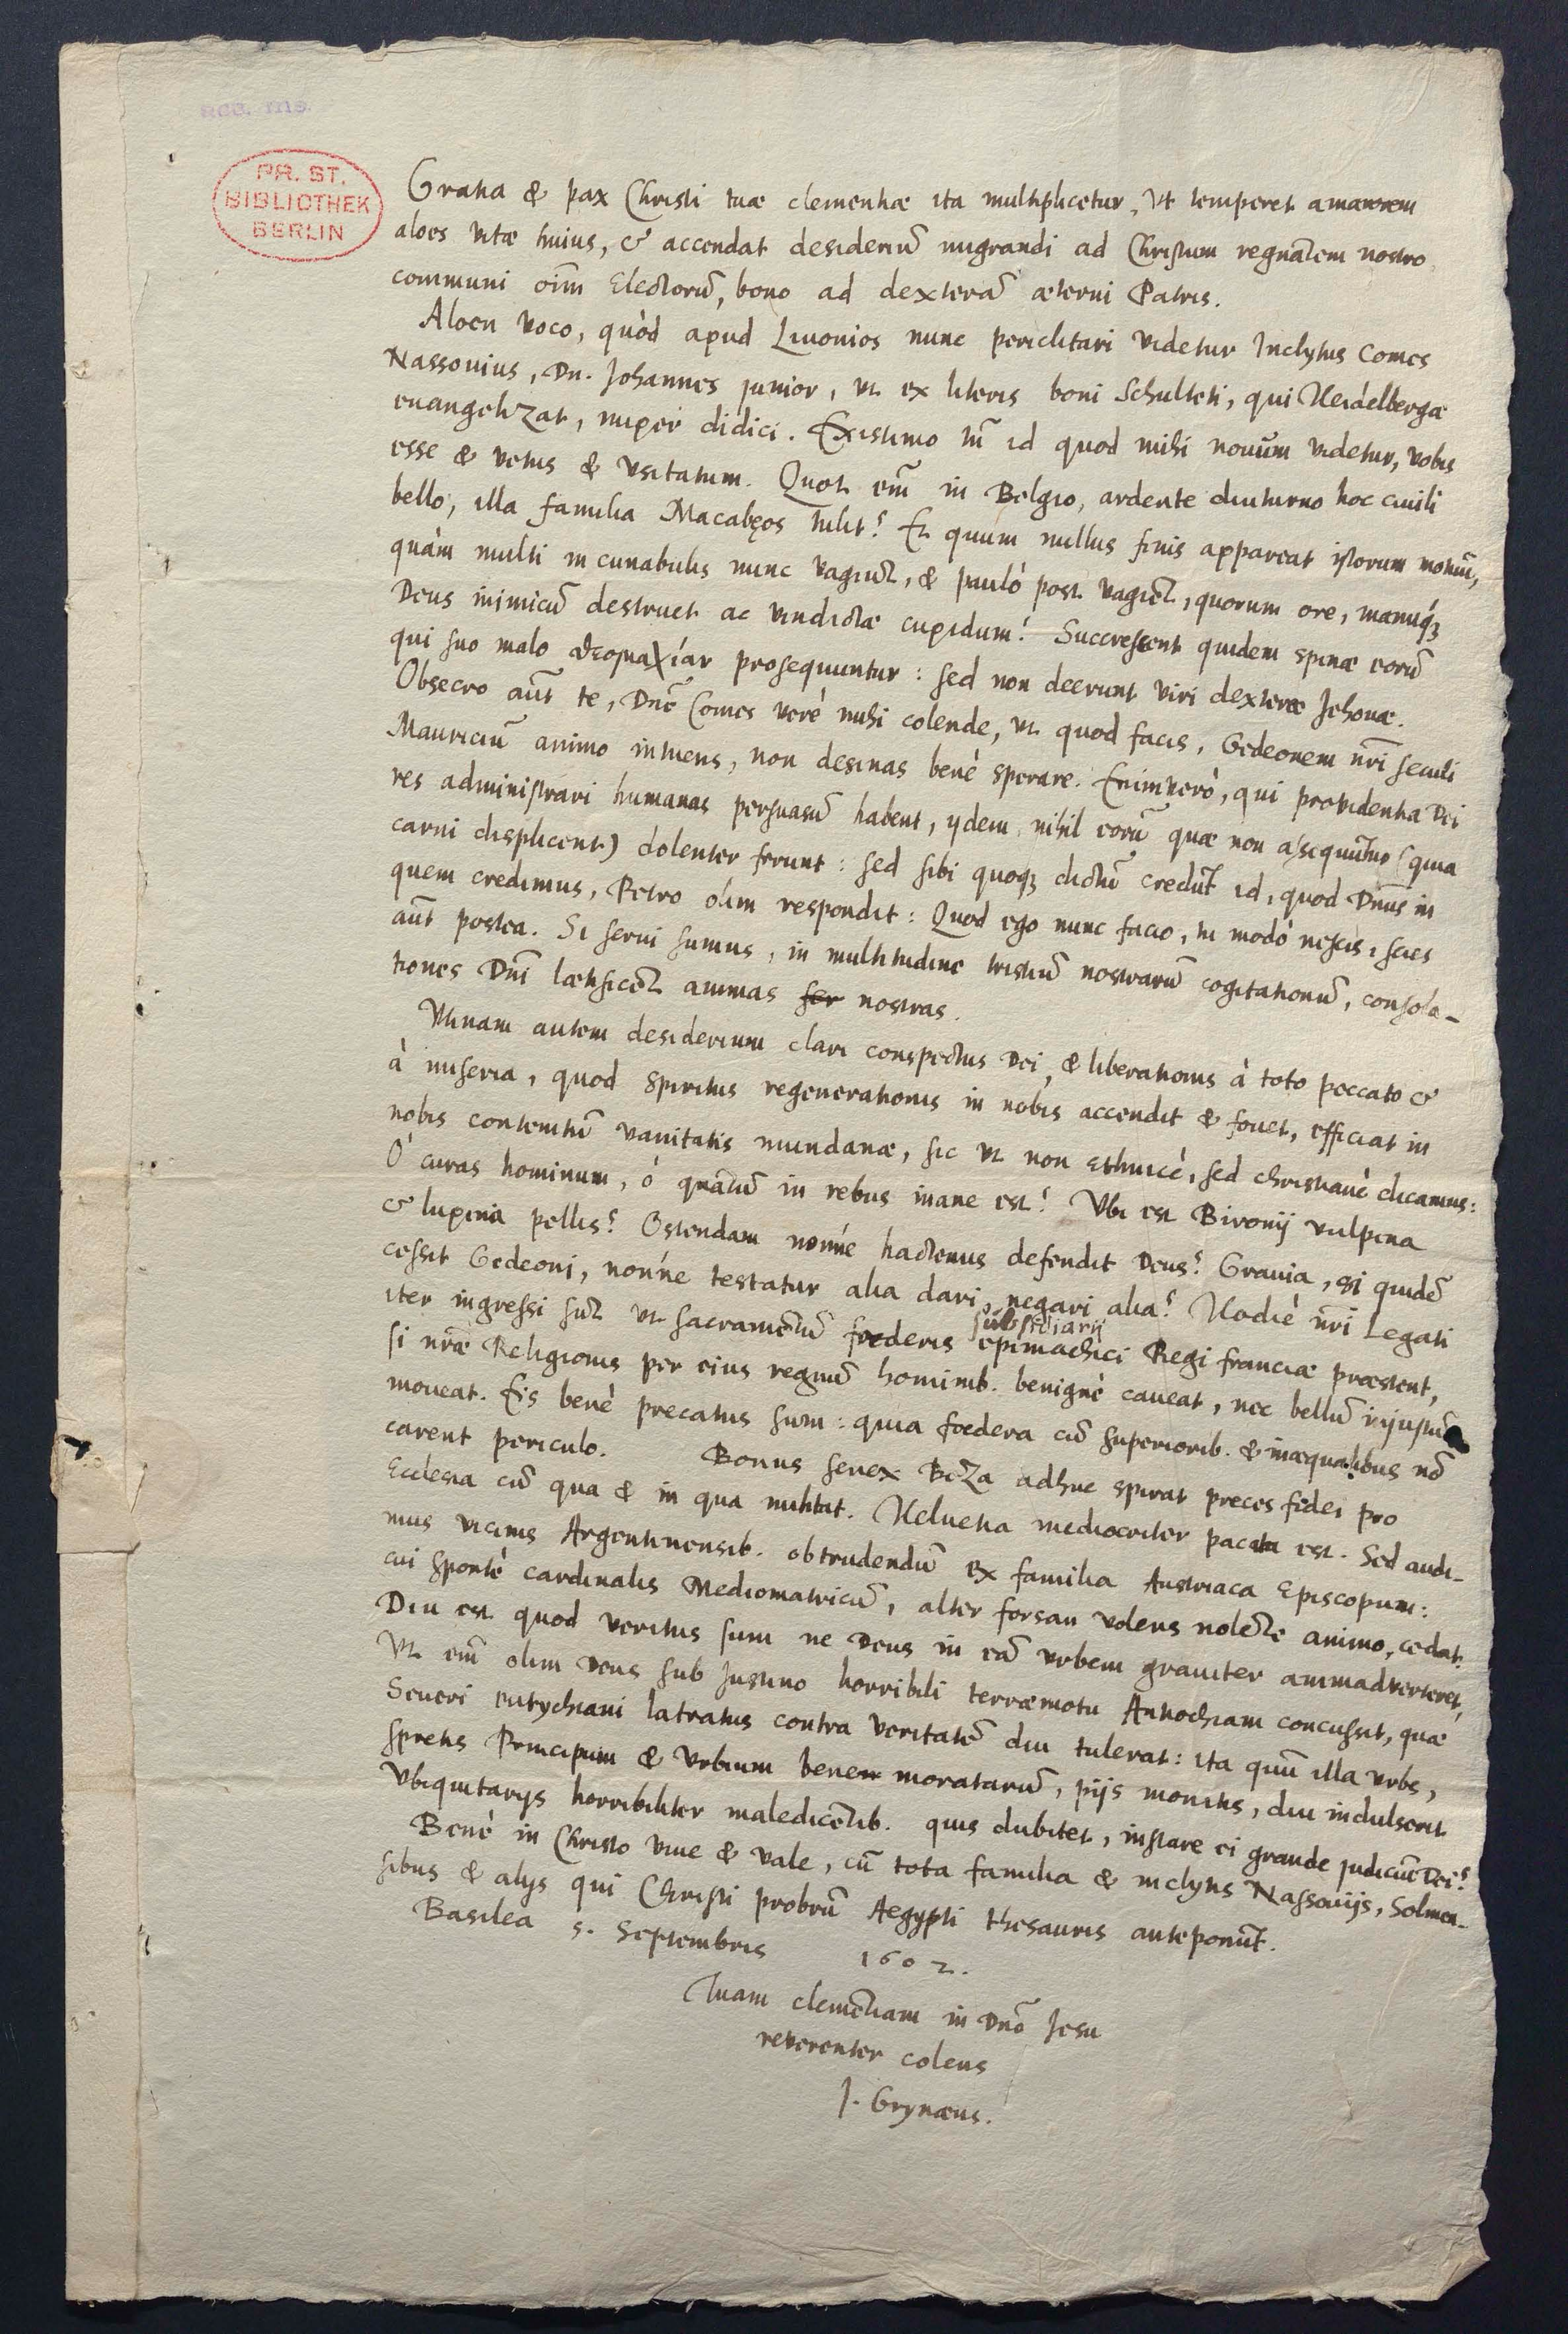 acc. ms.
PR. ST.
BIBLIOTHEK
BERLIN
Gratia & pax Christi tuæ clementiæ ita multiplicetur, Vt temperet amarorem
aloes vitæ huius, & accendat desideriū migrandi ad Christum regnātem nostro
communi oīm Electorū, bono ad dexterā æterni Patris.
Aloen voco, quòd apud Liuonios nunc periclitari videtur Inclytus Comes
Nassouius, Dn. Johannes junior, vt ex literis boni Schulteti, qui Heidelbergæ
euangelizat, nuper didici. Existimo tñ id quod mihi nouum videtur, vobis
esse & vetus & vsitatum. Quot em̄ in Belgio, ardēte diuturno hoc ciuili
bello, illa familia Macabęos tulit? Et quum nullus finis appareat istorum motuū,
quàm multi in cunabulis nunc vagiūt, & paulò post vagiēt, quorum ore, manuq́ꝫ
Deus inimicū destruet ac vindictæ cupidum! Succrescent quidem spinæ eorū
qui suo malo θεομαχίαν prosequuntur: sed non deerunt viri dexteræ Jehouæ.
Obsecro aūt te, Dnē Comes verè mihi colende, vt quod facis, Gedeonem nrī seculi
Mauriciū animo intuens, non desinas benè sperare. Enimverò, qui prouidentia Dei
res administrari humanas persuasū habent, ijdem nihil eorū quæ non assequūtur (quia
carni displicent) dolenter ferunt: sed sibi quoqꝫ dictū credūt id, quod Dn̄us in
quem credimus, Petro olim respondit: Quod ego nunc facio, tu modò nescis, scies
aūt postea. Si serui sumus, in multitudine tristiū nostrarū cogitationū, consola-
tiones Dnī lætificēt animas ser nostras.
Vtinam autem desiderium clari conspectus Dei, & liberationis à toto peccato &
à miseria, quod spiritus regenerationis in nobis accendit & fouet, efficiat in
nobis contemtū vanitatis mundanæ, sic vt non Ethnicè, sed christianè dicamus:
Ô curas hominum, ô quātū in rebus inane est! Vbi est Bironij vulpina
& lupina pellis? Ostendam nónne hactenus defendit Deus? Grauia, si quidē
cessit Gedeoni, nónne testatur alia dari, negari alia? Hodiè nrī Legati
iter ingressi sūt vt sacramētū foederis epimachici Regi franciæ præstent,
subsidiarij
si nrǣ Religionis per eius regnū hominib. benignè caueat, nec bellū injustū
moueat. Eis benè precatus sum: quia foedera cū superiorib. & inæqualibus nō
carent periculo. Bonus senex Beza adhuc spirat preces fidei pro
Ecclesia cū qua & in qua militat. Heluetia mediocriter pacata est. Sed audi-
mus vicinis Argentinensib. obtrudendū ex familia Austriaca Episcopum:
cui sponte cardinalis Mediomatricū, alter forsan volens nolēte animo, cedat.
Diu est quod veritus sum ne Deus in eā vrbem grauiter animadverteret,
Vt em̄ olim Deus sub Justino horribili terræmotu Antiochiam concussit, quæ
Seueri eutychiani latratus contra veritatē diu tulerat: ita quū illa vrbs,
spretis Principum & vrbium bene moratarū, pijs monitis, diu indulserit
Vbiquitarijs horribiliter maledicētib. quis dubitet, instare ei grande judiciū Dei?
Benè in Christo viue & vale, cū tota familia & inclytis Nassouijs, Solmen-
sibus & alijs qui Christi probrū Aegypti thesauris anteponūt.
Basilea 5. Septembris 1602.
Tuam clemētiam in Dnō Jesu
reverenter colens
J. Grynæus.